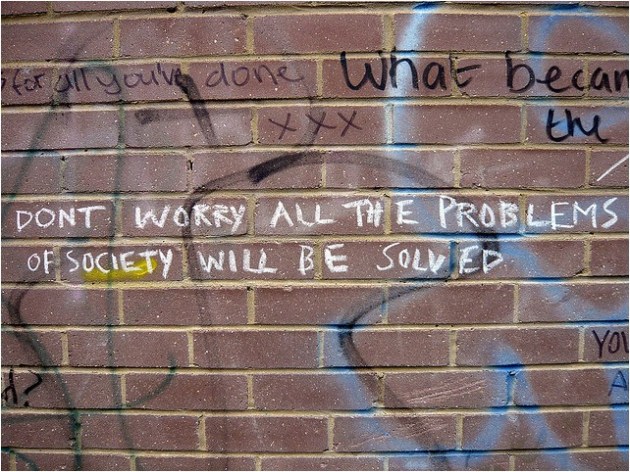 for all you've done
What becam
xxx
the
DONT WORRY ALL THE PROBLEMS
OF SOCIETY WILL BE SOLVED
YOU
A